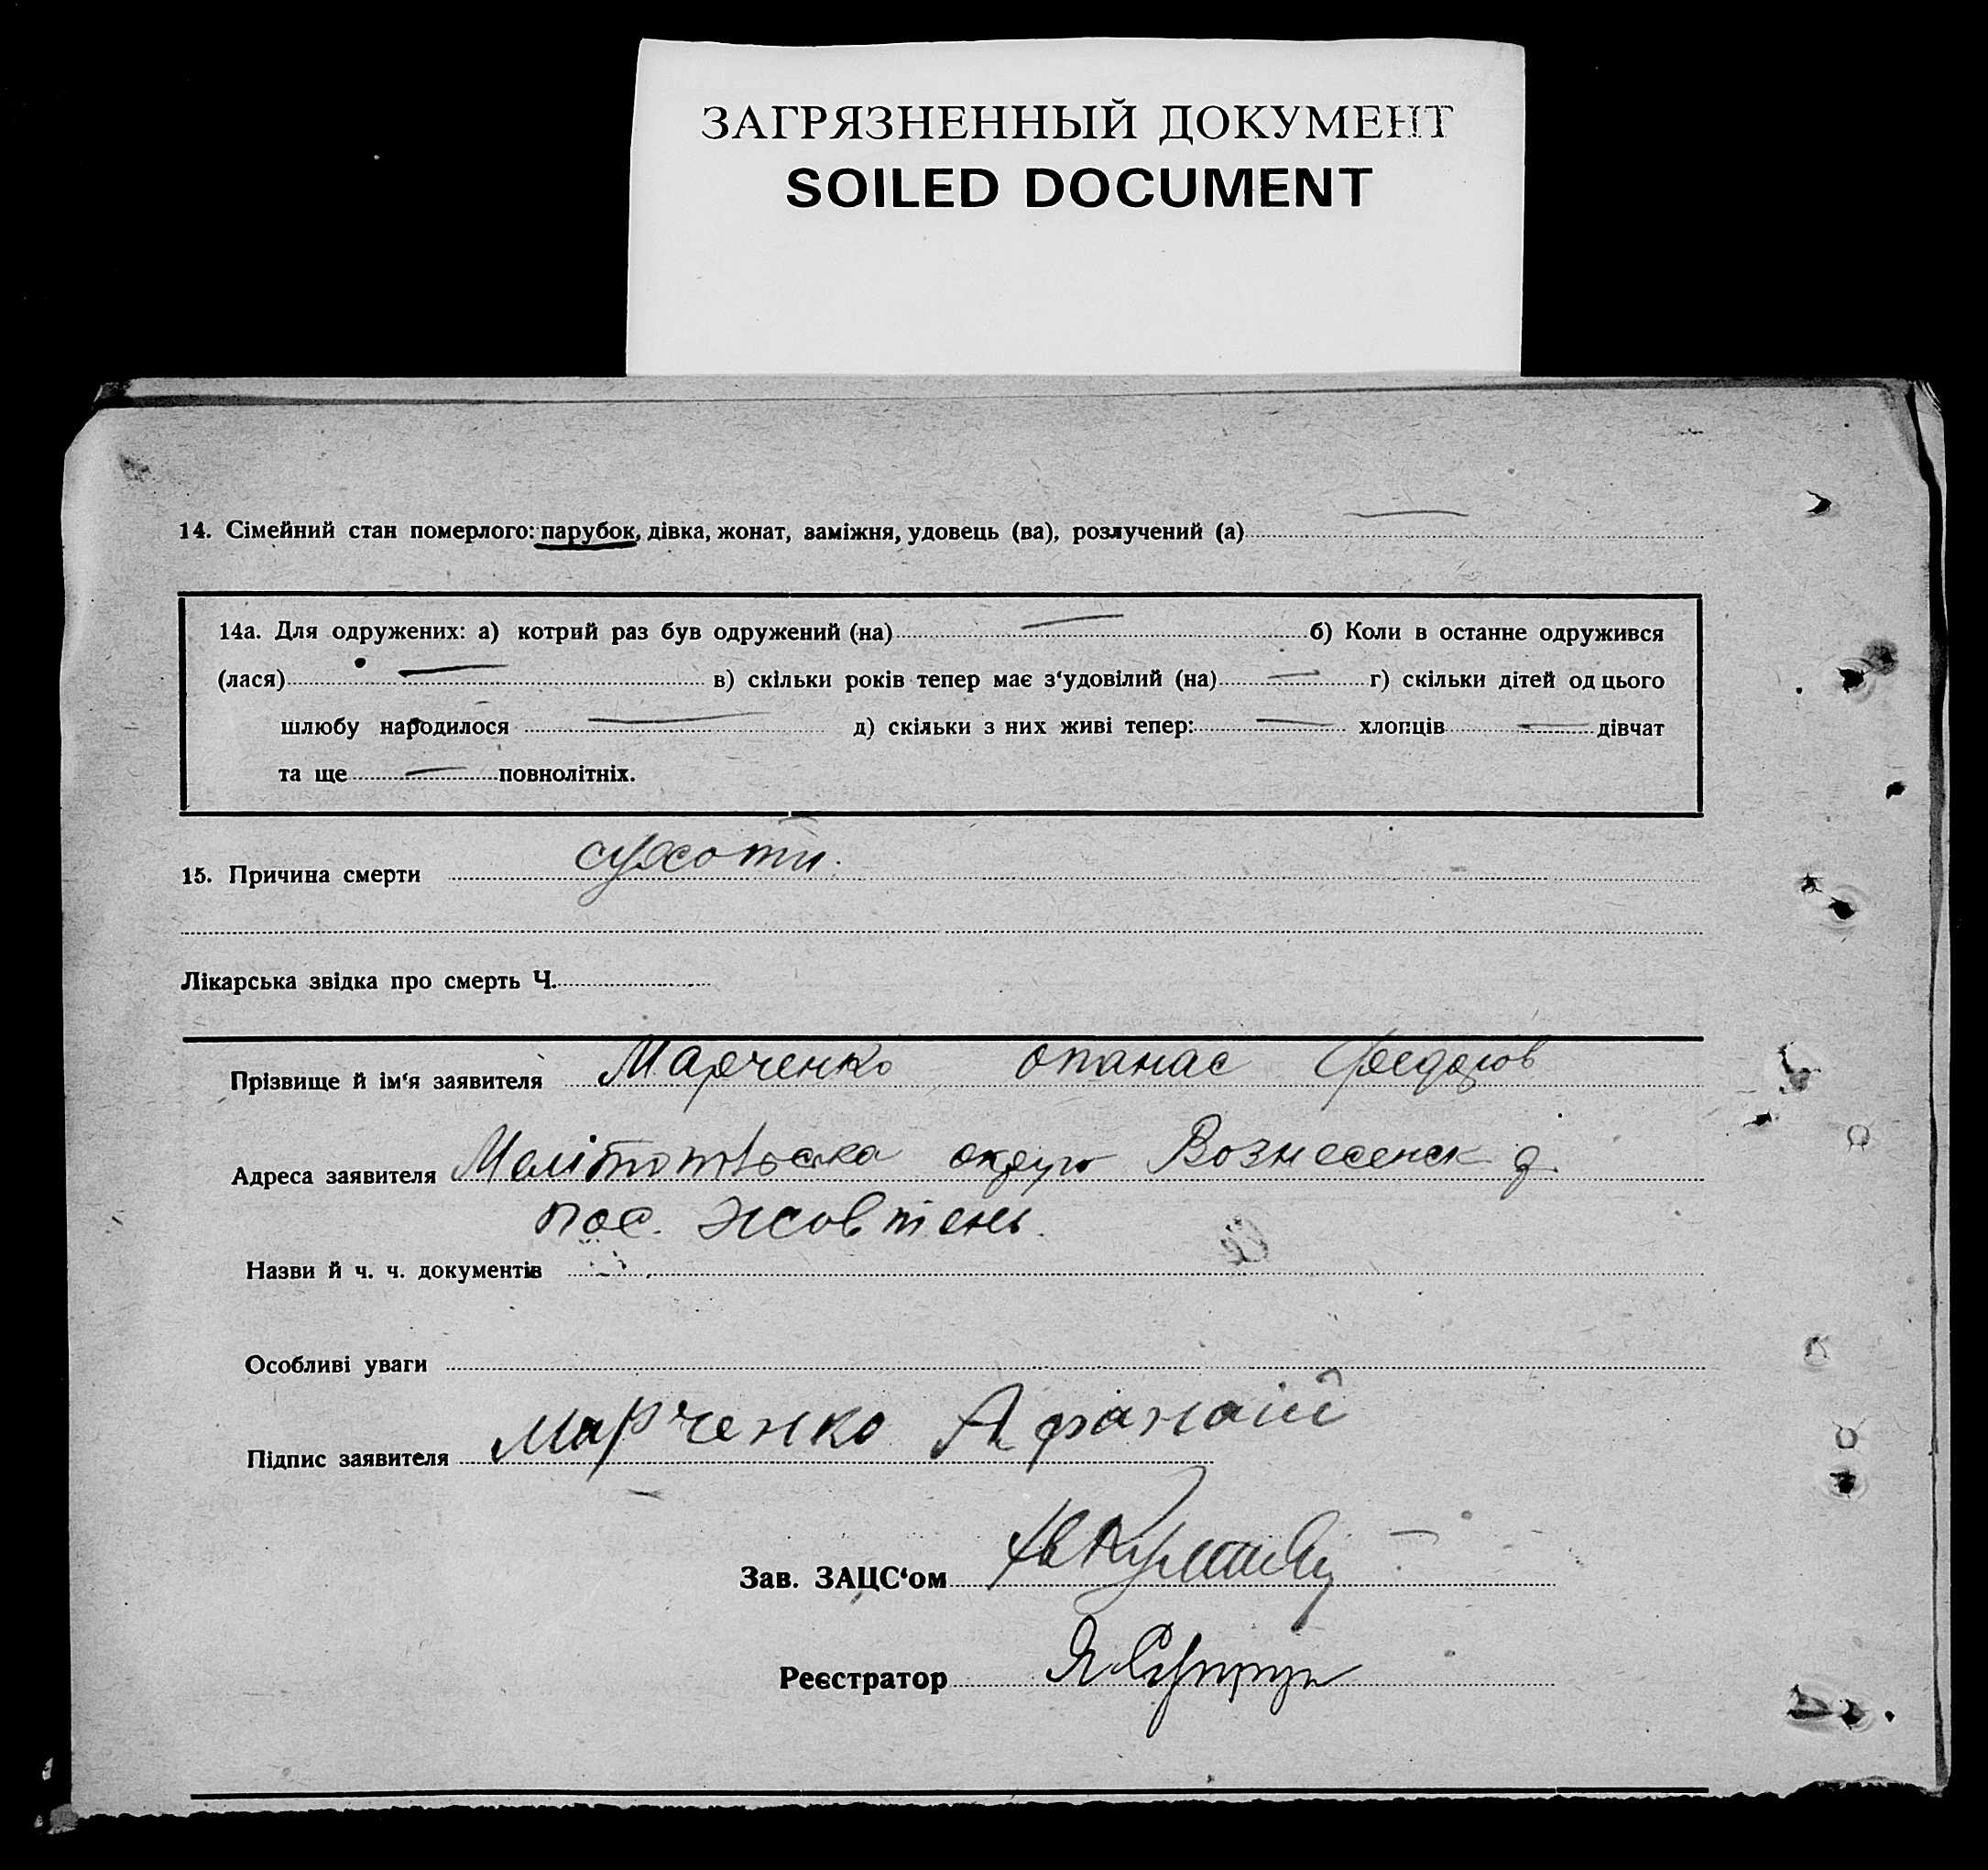 ЗАГРЯЗНЕННЫЙ ДОКУМЕНТ
SOILED DOCUMENT
14. Сімейний стан померлого: парубок, дівка, жонат, заміжня, удовець (ва), розлучений (а)
14а. Для одружених: а) котрий раз був одружений (на) б) Коли в останне одружився
(лася) в) скільки років тепер має з‘удовілий (на) г) скільки дітей од цього
шлюбу народилося д) скільки з них живі тепер: хлопців дівчат
та ще повнолітніх.
15. Причина смерти сухоти.
Лікарська звідка про смерть Ч.
Прізвище й ім‘я заявителя Марченко Опанас Федоров
Адреса заявителя округ Вознесенск
пос. Жовтень.
Назви й ч. ч. документів
Особливі уваги
Підпис заявителя Марченко
Зав. ЗАЦС‘ом
Реєстратор